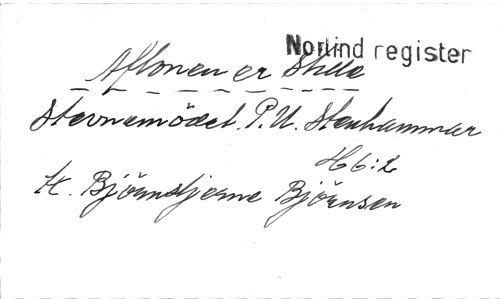 Norlind register
Aftonen er Stille
Stevnemödet. P.U. Stenhammar
H 6:2
K. Björnstjerne Björnsen